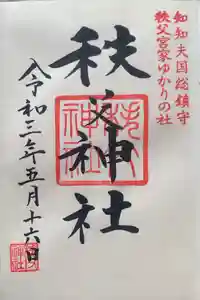 知知夫国総鎮守
秩父宮家ゆかりの社
秩父神社
令和三年五月十六日